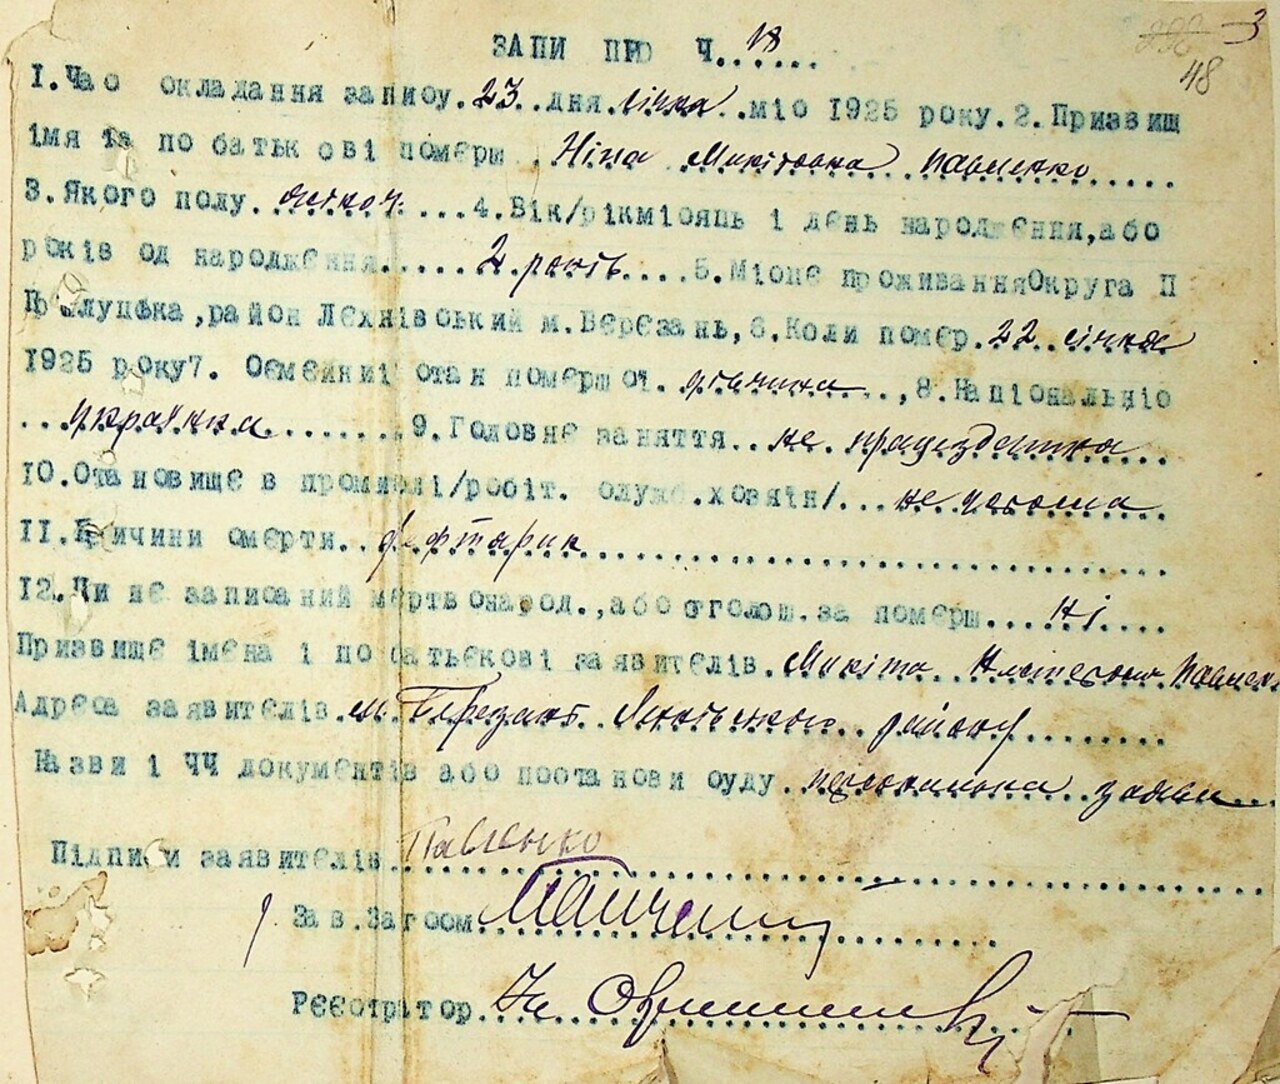 3
48
ЗАПИ ПРО Ч. 18
1. Час складання запису. 23. дня. січня. міс 1925 року. 2. Призвищ
імя та по батькові помєрш. Ніна Микітовна Павленко
3. Якого полу. жіноч. 4. Вік/рікмісяць і дєнь народжєння, або
років од народжєння..... 2. років.... 5. Місцє проживанняОкруга П
Прилуцька, район Лєхнівський м. Бєрєзань, 6. Коли помєр. 22. січня
1925 року 7. Сємєйний стан помєршої. дівчина..., 8. Національніс
...українка........ 9. Головнє заняття.. не. працездатна...
10. Становищє в промислі/робіт. служб. хозяїн/...
11. Причини смєрти..
12. Чи нє записаний мєртвонарод., або оголош. за помєрш.... Ні....
Призвищє імєна і по батьєкові заявитєлів. Микіта. Павленк
Адрєса заявитєлів. м. Березань. району........
Назви і ЧЧ докумєнтів або постанови суду. заява...
Підписи заявитєлів. Павленко
Зав. Загсом
Рєєстратор